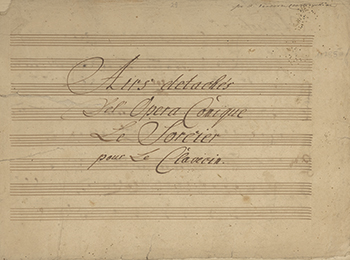 Airs detachés
Del Opera Cómique
Le Sorcier
pour Le Clavecin.